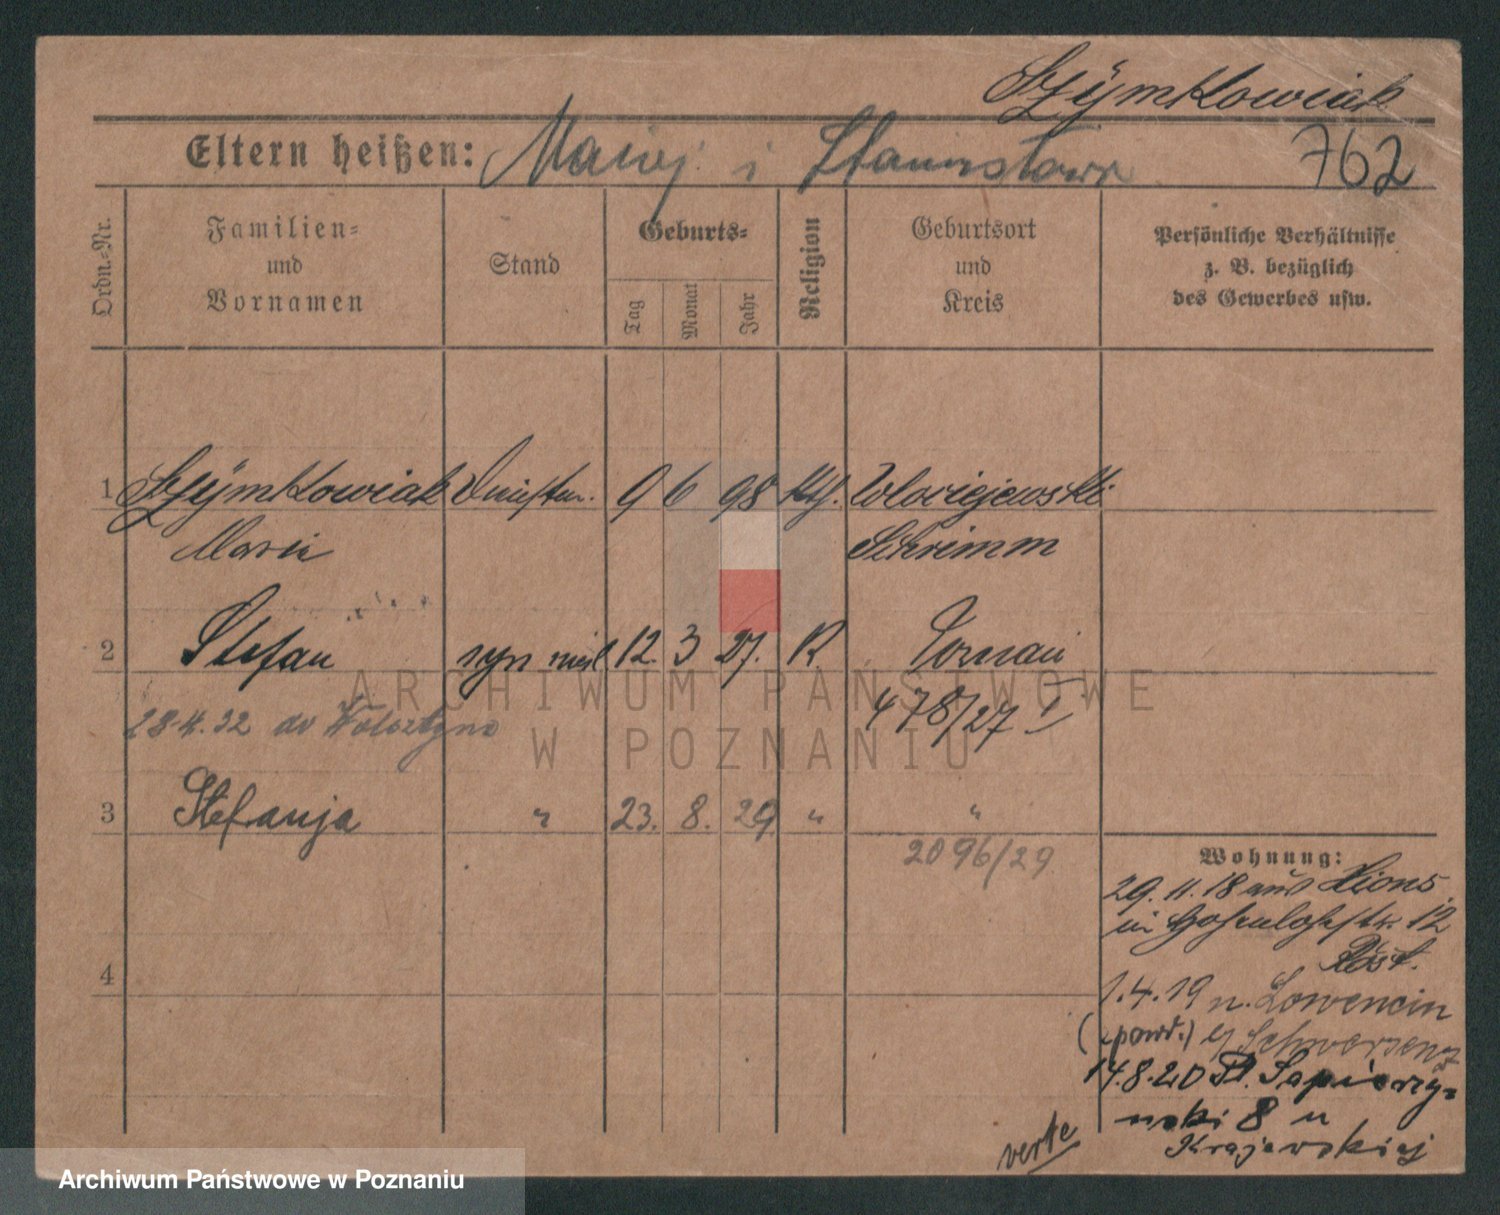 Szymkowiak
Eltern heißen: Maciej i Stanisława 762
Ordn.-Nr.
Familien- und Vornamen
Stand
Geburts-
Tag
Monat
Jahr
Religion
Geburtsort und Kreis
Persönliche Verhältnisse z. B. bezüglich des Gewerbes usw.
1 Szymkowiak 9 6 98 kth. Wlociejewski
Marie Schrimm
2 Stefan syn nieśl 12. 3 27. R. Poznań
28.4.32 do Wolsztyna 478/27 I
3 Stefanja " 23. 8. 29 " "
2096/29
4
Wohnung:
29.11.18 aus Xions
in Hohenlohestr. 12
Röst.
1.4.19 n. Lowencin
(spowr.) b/ Schwersenz
14.8.20 Pl. Sapierzy-
nski 8 u
Krajewskiej
verte
ARCHIWUM PAŃSTWOWE
W POZNANIU
Archiwum Państwowe w Poznaniu